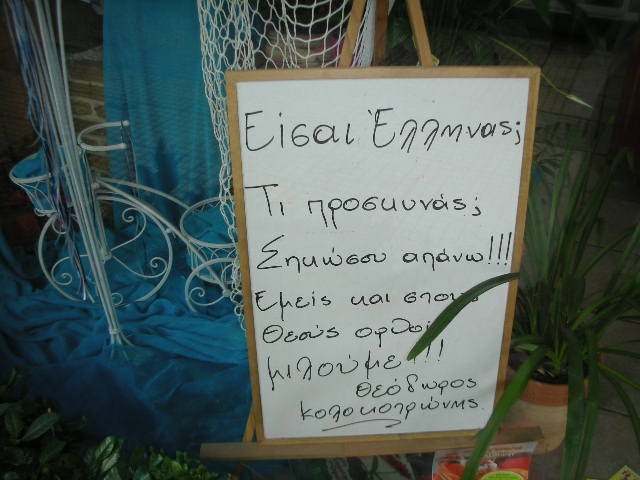 Είσαι Έλληνας;
Τι προσκυνάς;
Σηκώσου απάνω!!!
Εμείς και στους
Θεούς ορθοί
μιλούμε!!!
Θεόδωρος
Κολοκοτρώνης